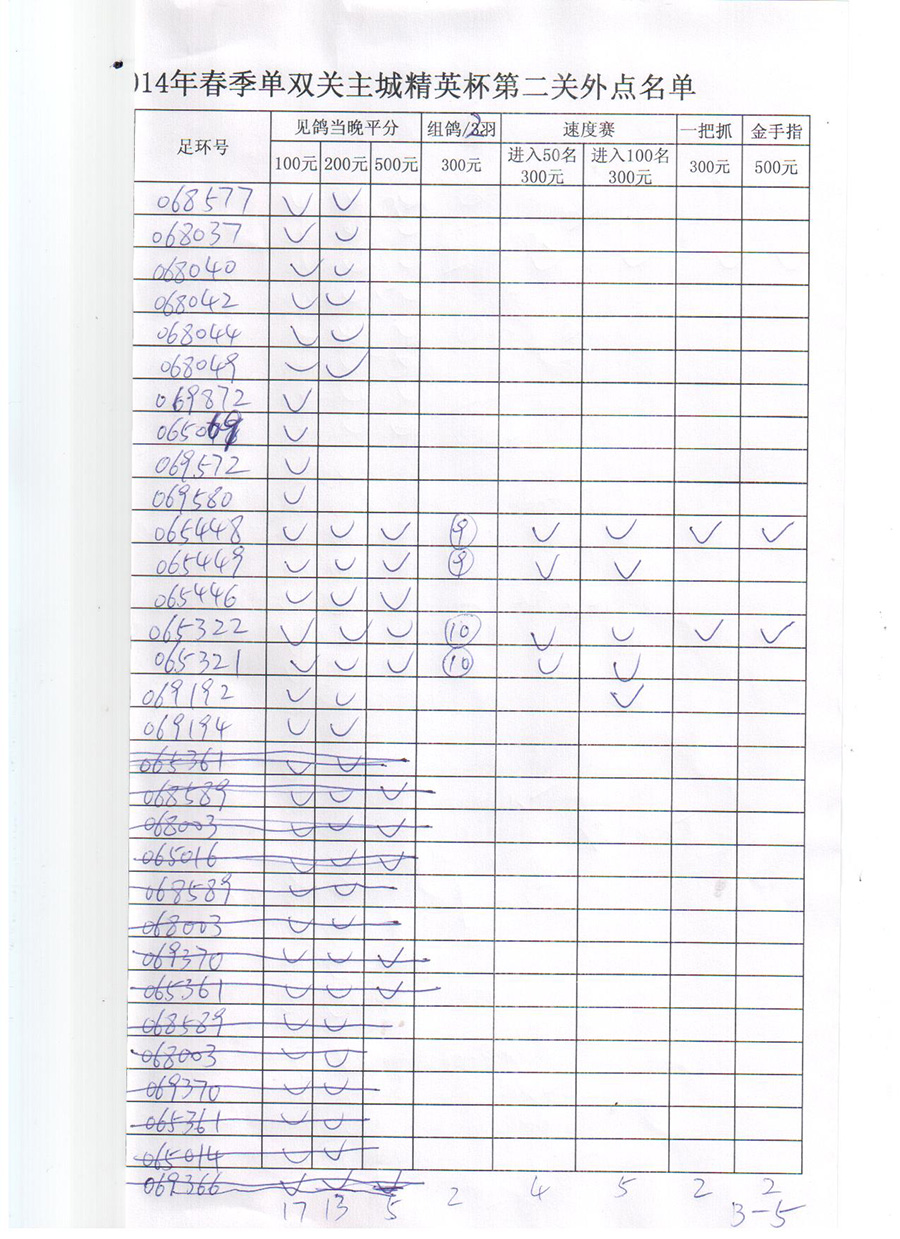 014年春季单双关主城精英杯第二关外点名单
足环号 见鸽当晚平分 组鸽/2羽 速度赛 一把抓 金手指
100元 200元 500元 300元 进入50名 300元 进入100名 300元 300元 500元
068577 ✓ ✓
068037 ✓ ✓
068040 ✓ ✓
068042 ✓ ✓
068044 ✓ ✓
068049 ✓ ✓
069872 ✓
065069 ✓
069572 ✓
069580 ✓
065448 ✓ ✓ ✓ ⑨ ✓ ✓ ✓ ✓
065449 ✓ ✓ ✓ ⑨ ✓ ✓
065446 ✓ ✓ ✓
065322 ✓ ✓ ✓ ⑩ ✓ ✓ ✓ ✓
065321 ✓ ✓ ✓ ⑩ ✓ ✓
069192 ✓ ✓ ✓
069194 ✓ ✓
065361 ✓ ✓
068589 ✓ ✓ ✓
068003 ✓ ✓ ✓
065016 ✓ ✓ ✓
068589 ✓ ✓
068003 ✓ ✓
069370 ✓ ✓ ✓
065361 ✓ ✓ ✓
068589 ✓ ✓
068003 ✓ ✓
069370 ✓ ✓
065361 ✓ ✓
065014 ✓ ✓
069366 ✓ ✓ ✓
17 13 5 2 4 5 2 2
3-5